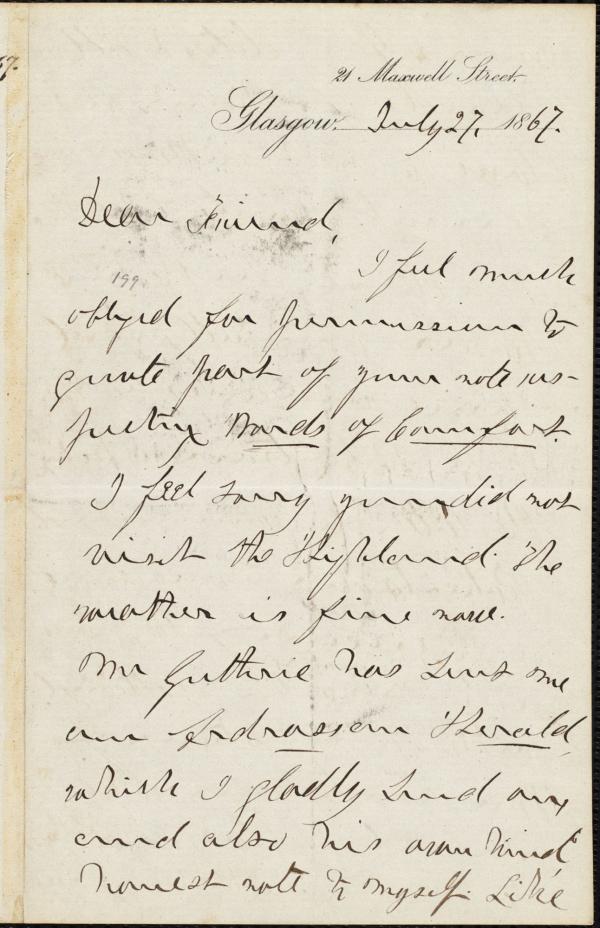 57.
21 Maxwell Street.
Glasgow. July 27, 1867.
Dear Friend,
I feel much
199
obliged for permission to
quote part of your note res-
pecting Words of Comfort.
I feel sorry you did not
visit the Highland. The
weather is fine now.
Mr Guthrie has sent me
an Ardrossan Herald,
which I gladly send
and also his own kind
honest note to myself. Like